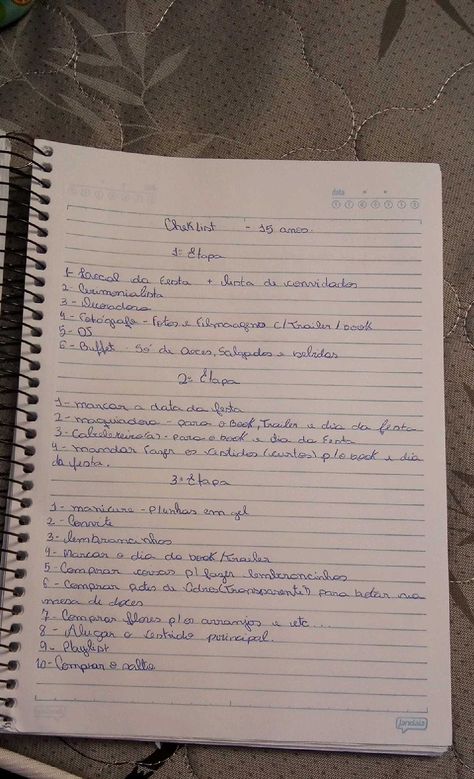 data
CheKList - 15 anos.
1ª Etapa
1- Laccal da Festa + lista de convidados
2- Cerimonialista
3- Decoradora
4- Fotógrafo - Fotos e Filmagens c/ Trailer / book
5- DJ
6- Buffet - Só de doces, Salgados e bebidas
2ª Etapa
1- marcar a data da festa
2- maquiadora - para o Book, Trailer e dia da festa
3- Cabeleireiro(a) - para o book e dia da Festa
4- mandar fazer os vestidos (curtos) p/o book e dia
da festa.
3ª Etapa
1- manicure - p/unhas em gel
2- Convite
3- lembrancinhas
4- Marcar o dia do book/trailer
5- Comprar coisas p/ fazer lembrancinhas
6- Comprar potes de (Transparente) para botar na
mesa de doces
7- Comprar flores p/os arranjos e etc...
8- Alugar o vestido principal.
9- Playlist
10- Comprar o salto
jandaia